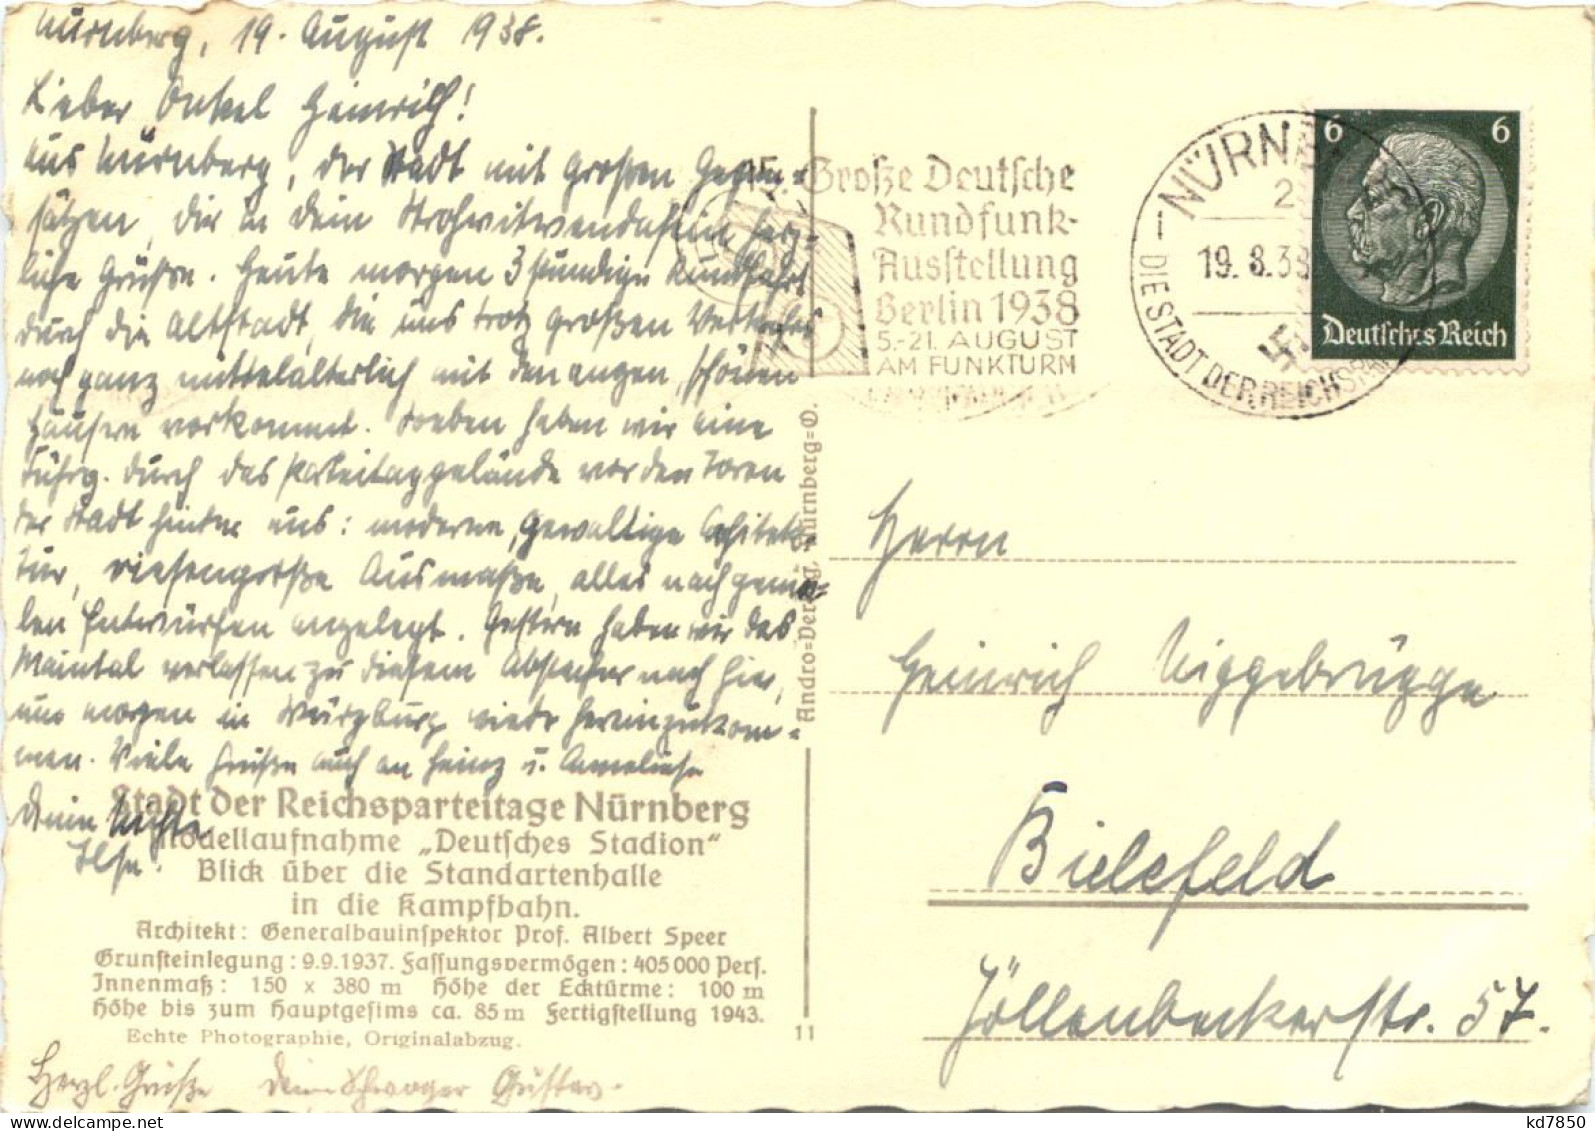 Nürnberg, 19. August 1938.
Lieber Onkel Heinrich!
Aus Nürnberg, der Stadt mit großen Gegen-
sätzen, dir in dein Strohwitwendasein herz-
liche Grüße. Heute morgen 3 stündige Rundfahrt
durch die Altstadt, die uns trotz großen Verkehrs
noch ganz mittelalterlich mit den engen, schönen
Häusern vorkommt. Soeben haben wir eine
Führg. durch das Parteitaggelände vor den Toren
der Stadt hinter uns: moderne, gewaltige Architek-
tur, riesengroße Ausmaße, alles nach genia-
len Entwürfen angelegt. Gestern haben wir das
Maintal verlassen zu diesem Abstecher nach hier,
um morgen in Würzburg wieder hereinzukom-
men. Viele Grüße auch an Heinz u. Anneliese
Deine Nichte
Ilse.
Stadt der Reichsparteitage Nürnberg
Modellaufnahme „Deutsches Stadion“
Blick über die Standartenhalle
in die Kampfbahn.
Architekt: Generalbauinspektor Prof. Albert Speer
Grunsteinlegung: 9.9.1937. Fassungsvermögen: 405 000 Pers.
Innenmaß: 150 x 380 m Höhe der Ecktürme: 100 m
Höhe bis zum Hauptgesims ca. 85 m Fertigstellung 1943.
Echte Photographie, Originalabzug.
Herzl. Grüße Dein Schwager Gustav.
Andro=Verlag, Nürnberg=O.
11
15. Große Deutsche
Rundfunk-
Ausstellung
Berlin 1938
5.-21. AUGUST
AM FUNKTURM
NÜRNB
2
19. 8. 38
DIE STADT DER REICHSPAR
6 6
Deutsches Reich
Herrn
Heinrich Niggebrügge
Bielefeld
Jöllenbeckerstr. 57.
kd7850